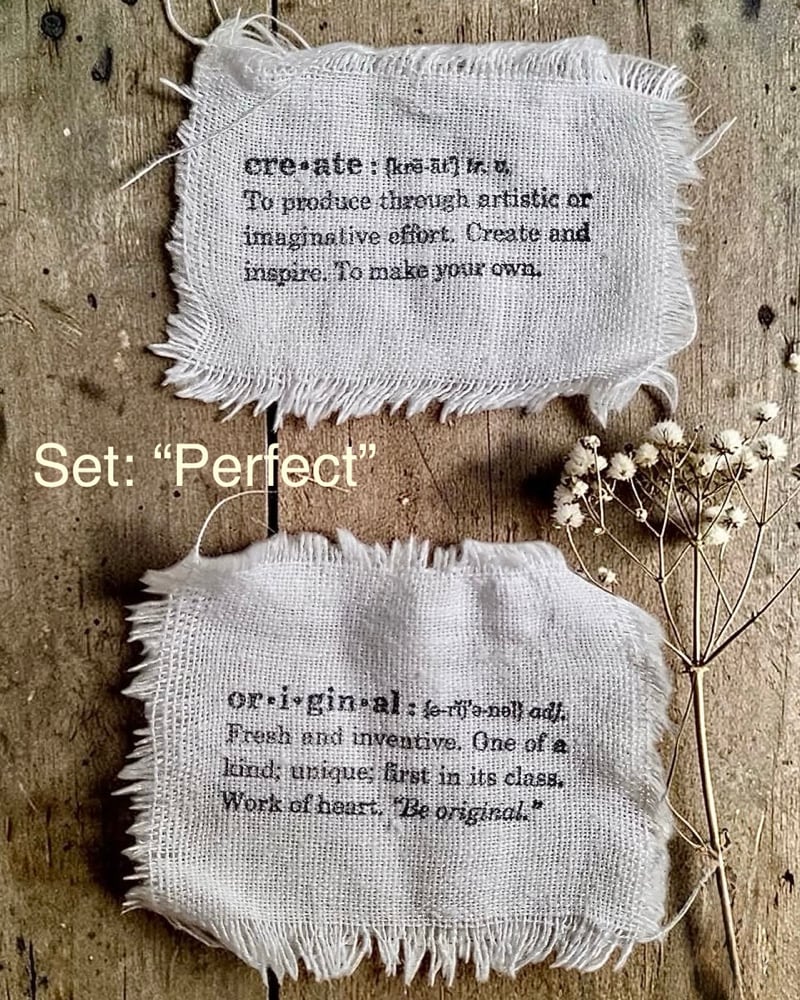 cre•ate : [krē-āt'] tr. v.
To produce through artistic or
imaginative effort. Create and
inspire. To make your own.
Set: “Perfect”
or•i•gin•al : [ə-rĭj'ə-nəl] adj.
Fresh and inventive. One of a
kind; unique; first in its class.
Work of heart. “Be original.”